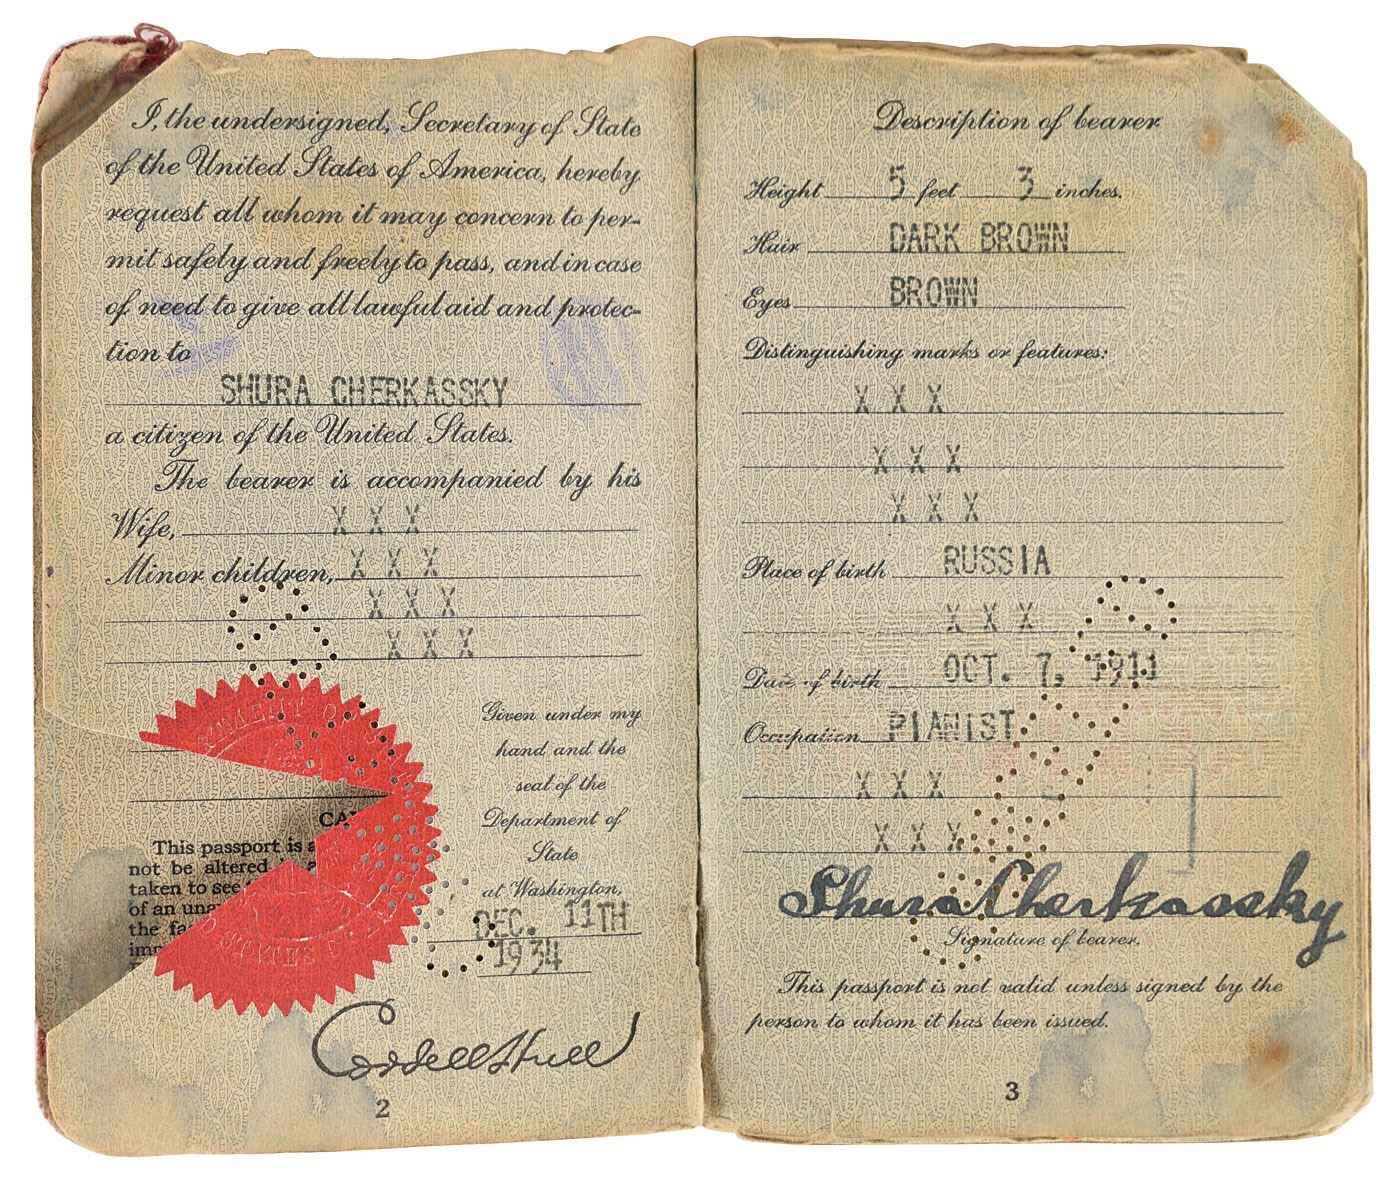 I, the undersigned, Secretary of State
of the United States of America, hereby
request all whom it may concern to per-
mit safely and freely to pass, and in case
of need to give all lawful aid and protec-
tion to
SHURA CHERKASSKY
a citizen of the United States.
The bearer is accompanied by his
Wife, X X X
Minor children, X X X
X X X
X X X
Given under my
hand and the
seal of the
Department of
State
at Washington,
DEC. 11TH
1934
This passport is
not be altered
taken to see
of an
the
Cordell Hull
2
Description of bearer
Height 5 feet 3 inches.
Hair DARK BROWN
Eyes BROWN
Distinguishing marks or features:
X X X
X X X
X X X
Place of birth RUSSIA
X X X
Date of birth OCT. 7, 1911
Occupation PIANIST
X X X
X X X
Shura Cherkassky
Signature of bearer.
This passport is not valid unless signed by the
person to whom it has been issued.
3